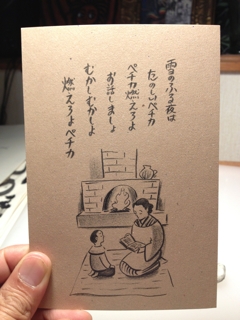 雪のふる夜は
たのしいペチカ
ペチカ燃えろよ
お話しましょ
むかしむかしよ
燃えろよペチカ